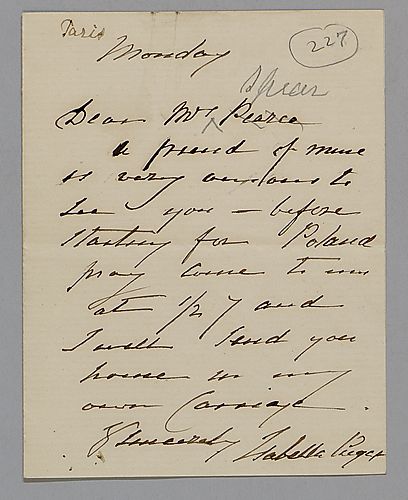 Paris
227
Monday
Spear
Dear Mrs Pearce
a friend of mine
is very anxious to
see you – before
starting for Poland
pray come to me
at 1/2 7 and
I will send you
home in my
own Carriage.
Sincerely Isabella